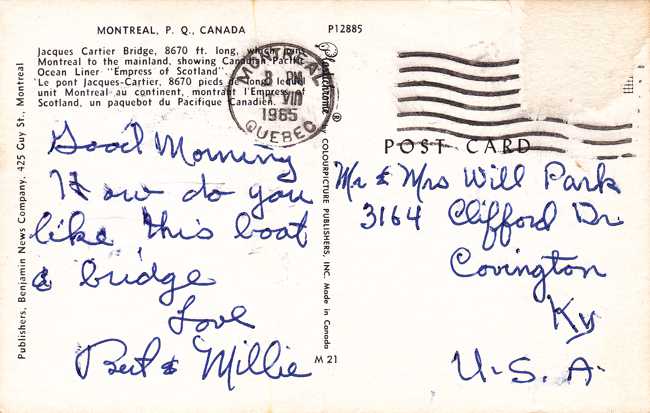 MONTREAL, P. Q., CANADA
P12885
Jacques Cartier Bridge, 8670 ft. long, which joins
Montreal to the mainland, showing Canadian Pacific
Ocean Liner "Empress of Scotland".
Le pont Jacques-Cartier, 8670 pieds de long, qui
unit Montreal au continent, montrant l'Empress of
Scotland, un paquebot du Pacifique Canadien.
MONTREAL
8 PM
VIII
1965
QUEBEC
Good Morning
How do you
like this boat
& bridge
Love
Bert & Millie
Publishers, Benjamin News Company, 425 Guy St., Montreal
Plastichrome ®
by COLOURPICTURE PUBLISHERS, INC. Made in Canada
M 21
POST CARD
Mr & Mrs Will Park
3164 Clifford Dr.
Covington
Ky
U.S.A.